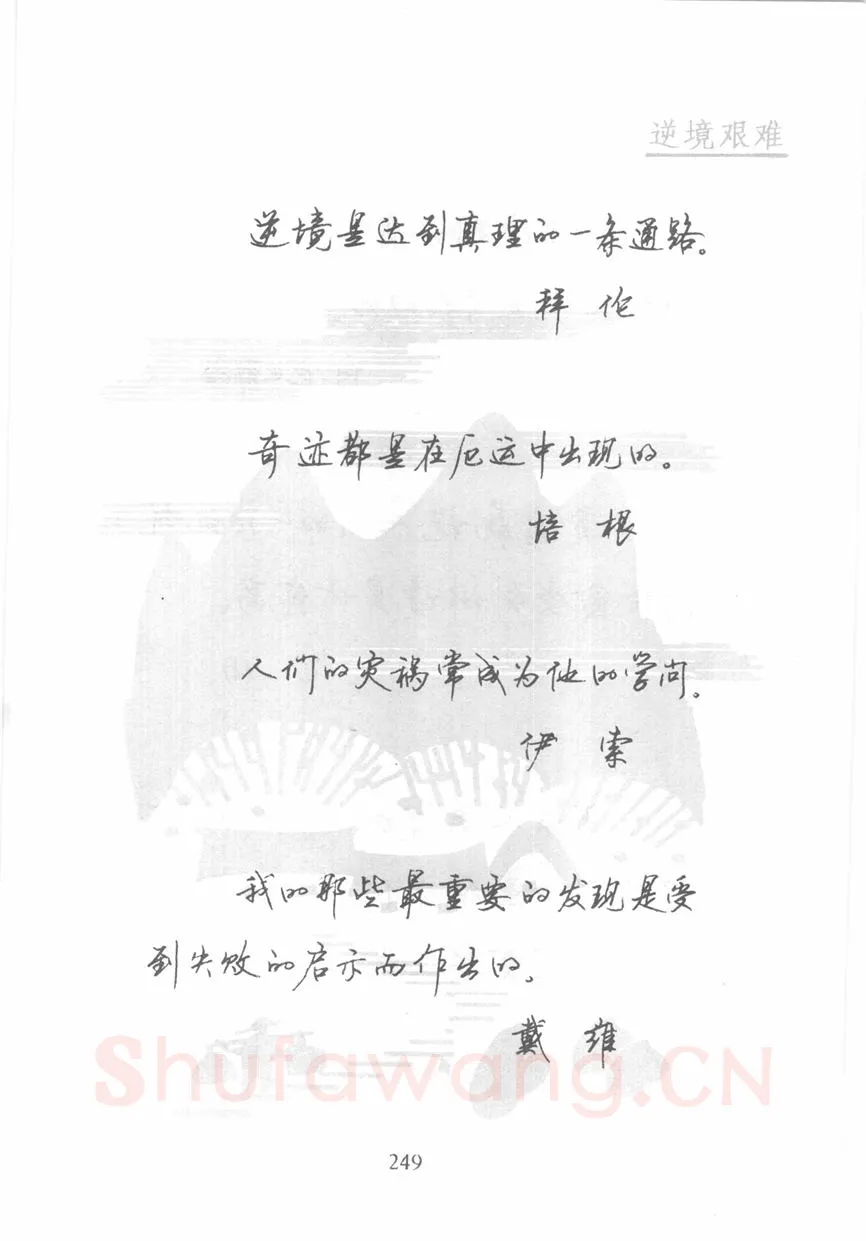 逆境艰难
逆境是达到真理的一条通路。
拜伦
奇迹都是在厄运中出现的。
培根
人们的灾祸常成为他的学问。
伊索
我的那些最重要的发现是受
到失败的启示而作出的。
戴维
Shufawang.CN
249